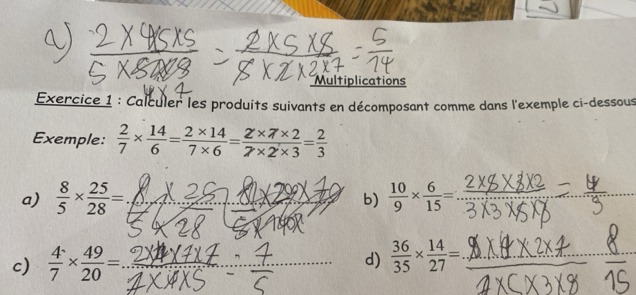 a) 2 × 4 × 5 × 5 / 5 × = 2 × 5 × 8 / 8 × 2 × 2 × 7 = 5 / 14
4 × 7
Multiplications
Exercice 1 : Calculer les produits suivants en décomposant comme dans l'exemple ci-dessous
Exemple: 2/7 × 14/6 = 2 × 14 / 7 × 6 = 2 × 7 × 2 / 7 × 2 × 3 = 2/3
a) 8/5 × 25/28 = 8 × 25 / 5 × 28
b) 10/9 × 6/15 = 2 × 5 × 3 × 2 / 3 × 3 × 5 × = 4/9
c) 4/7 × 49/20 = 2 × × 7 × 7 / 7 × 4 × 5 = 7/5
d) 36/35 × 14/27 = × 4 × 2 × 7 / 7 × 5 × 3 × 8/15